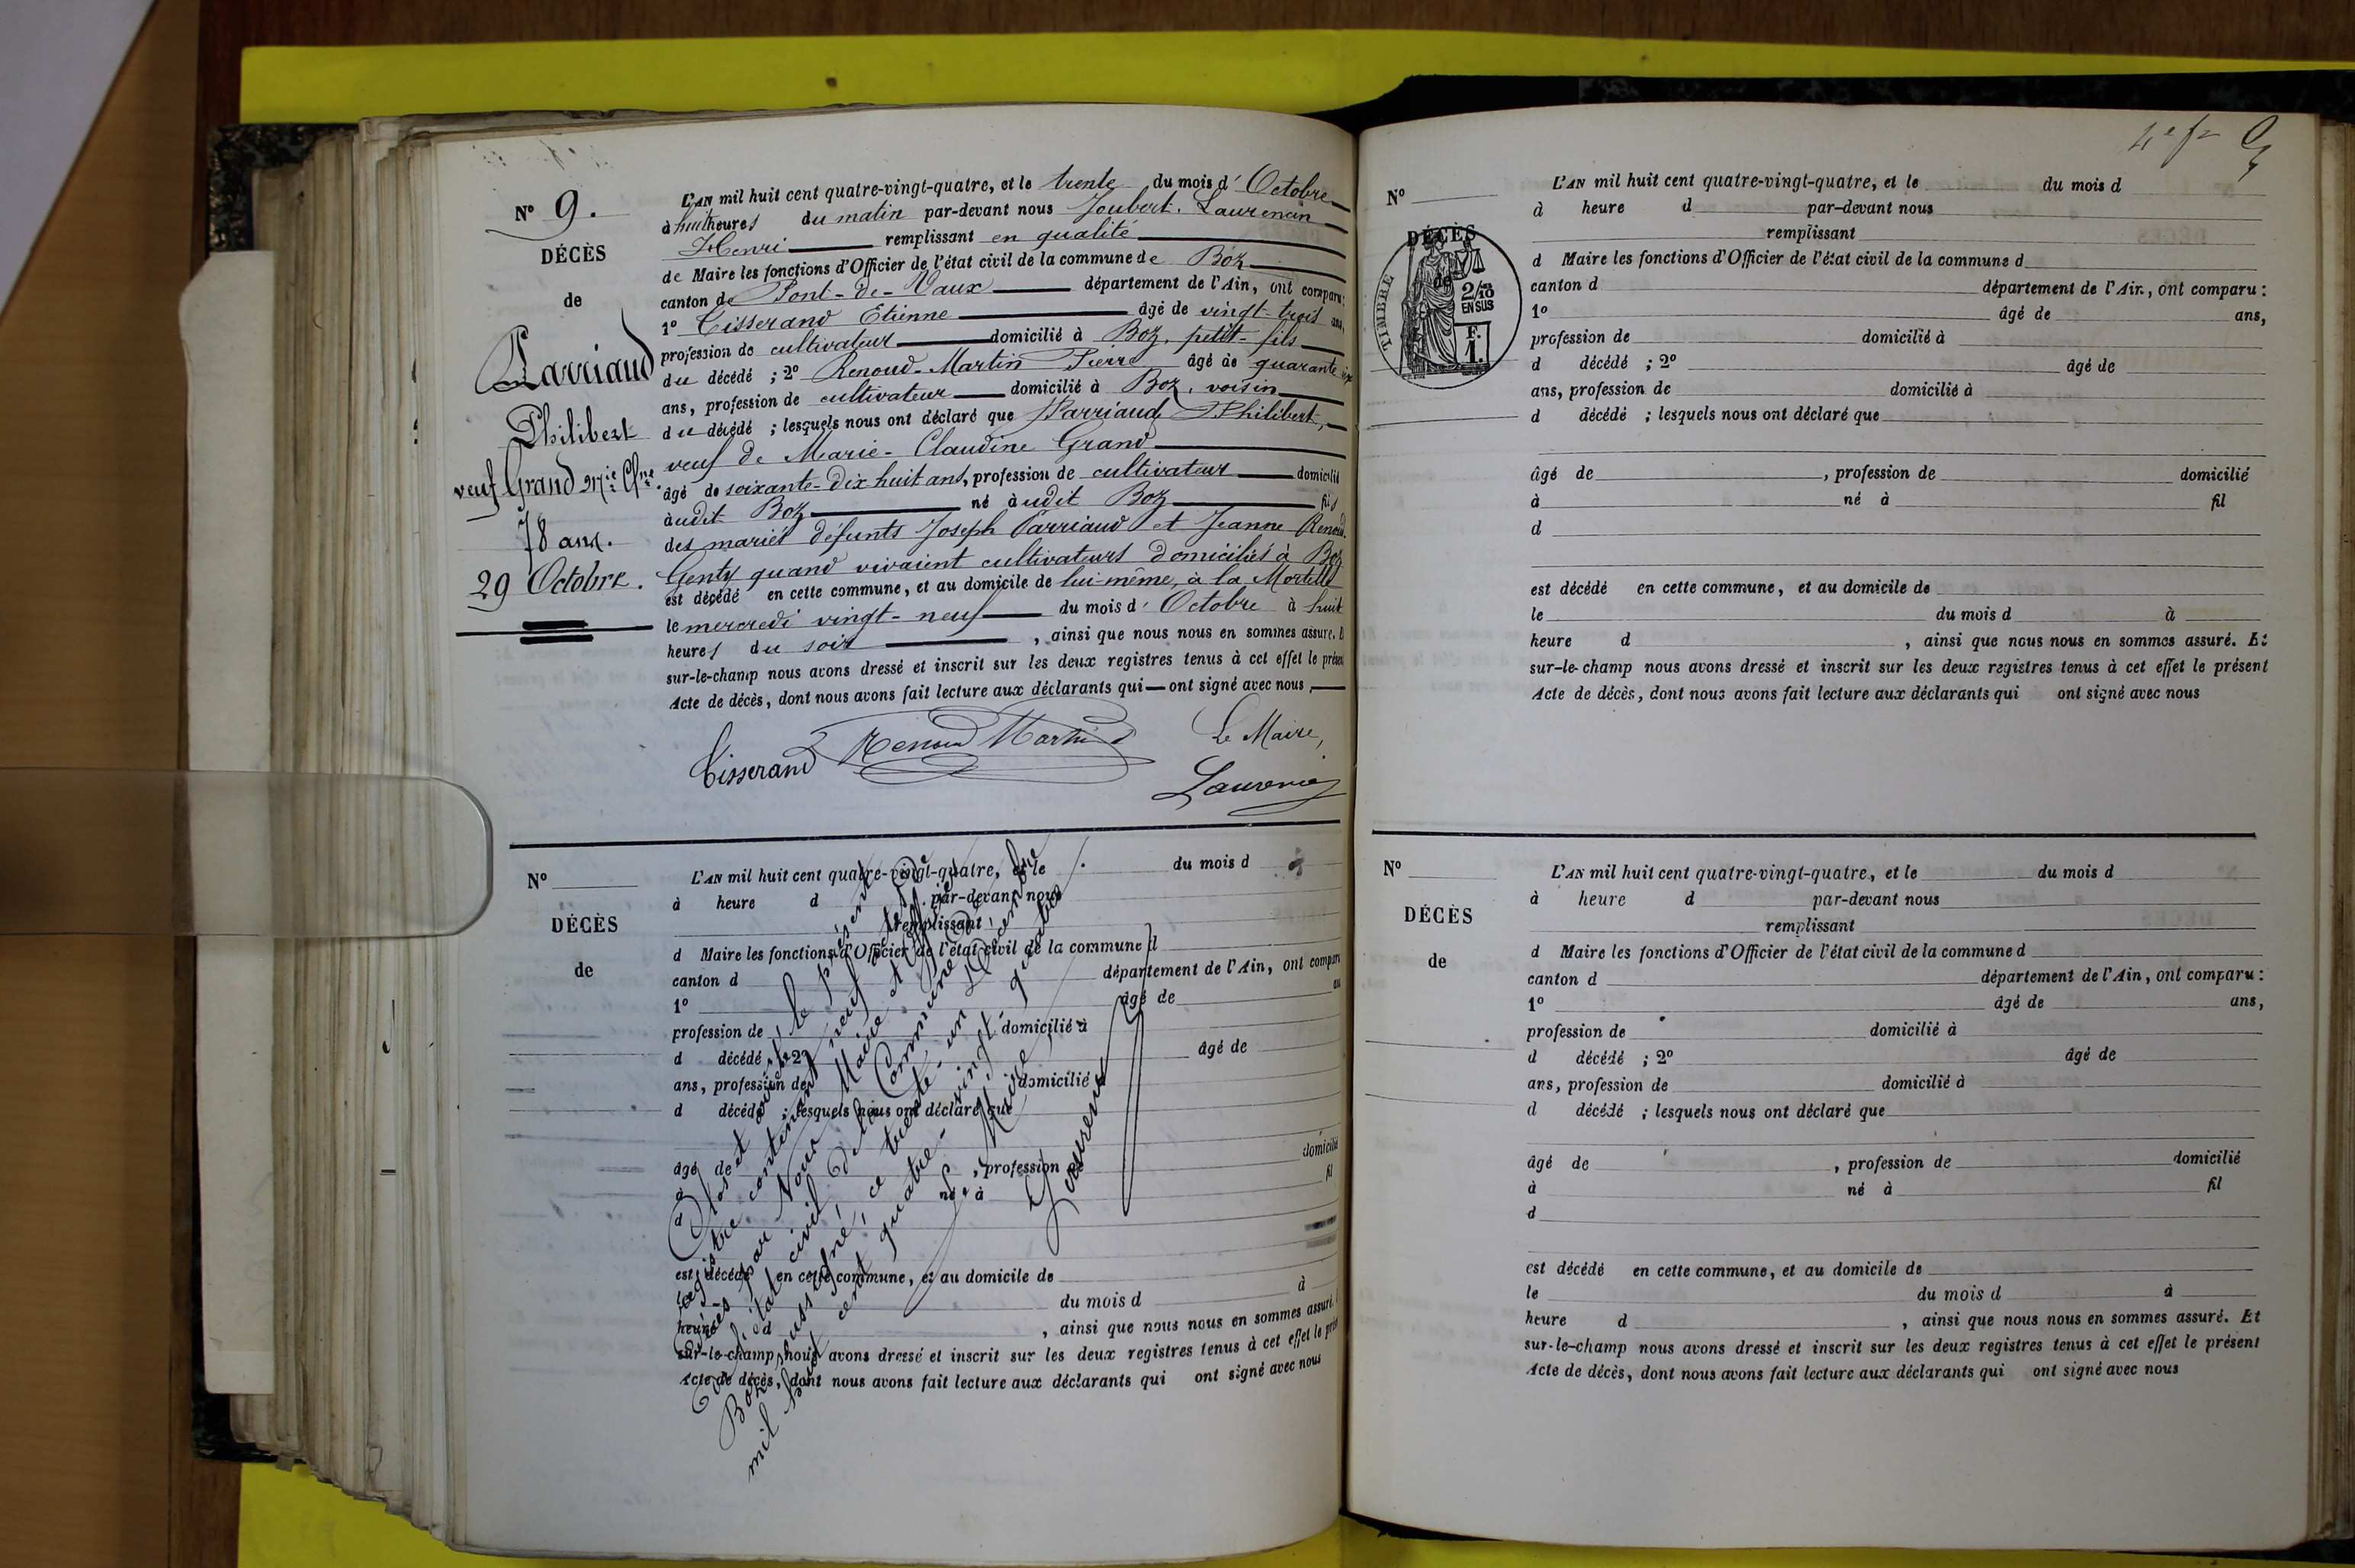 N° 9.
DÉCÈS
de
Parriaud
Philibert
veuf Grand Mie Cne.
78 ans.
29 Octobre.
L'AN mil huit cent quatre-vingt-quatre, et le trente du mois d' Octobre
à huit heures du matin par-devant nous Joubert. Laurencin
Henri remplissant en qualité
de Maire les fonctions d'Officier de l'état civil de la commune de Boz
canton de Pont-de-Vaux département de l'Ain, ont comparu:
1° Tisserand Etienne âgé de vingt-trois ans,
profession de cultivateur domicilié à Boz, petit-fils
du décédé ; 2° Renoud-Martin Pierre âgé de quarante
ans, profession de cultivateur domicilié à Boz, voisin
du décédé ; lesquels nous ont déclaré que Parriaud Philibert,
veuf de Marie-Claudine Grand
âgé de soixante-dix huit ans, profession de cultivateur domicilié
àudit Boz né àudit Boz fils
des mariés défunts Joseph Parriaud et Jeanne Renoud
Genty quand vivaient cultivateurs domiciliés à Boz
est décédé en cette commune, et au domicile de lui-même, à la Mortelle
le mercredi vingt-neuf du mois d' Octobre à huit
heures du soir , ainsi que nous nous en sommes assuré. E
sur-le-champ nous avons dressé et inscrit sur les deux registres tenus à cet effet le présen
Acte de décès, dont nous avons fait lecture aux déclarants qui — ont signé avec nous,
Tisserand Renoud Martin Le Maire,
Laurencin
N°
DÉCÈS
de
L'AN mil huit cent quatre-vingt-quatre, et le du mois d
à heure d par-devant nous
remplissant
d Maire les fonctions d'Officier de l'état civil de la commune d
canton d département de l'Ain, ont comparu
1° âgé de an
profession de domicilié à
d décédé ; 2° âgé de
ans, profession de domicilié à
d décédé ; lesquels nous ont déclaré que
âgé de , profession de domicilié
à né à fil
d
est décédé en cette commune, et au domicile de
le du mois d à
heure d , ainsi que nous nous en sommes assuré.
sur-le-champ nous avons dressé et inscrit sur les deux registres tenus à cet effet le prés
Acte de décès, dont nous avons fait lecture aux déclarants qui ont signé avec nous
Clos et arrêté le présent
registre contenant neuf actes de
Décès par Nous Maire et Officier
de l'état civil de la Commune de
Boz, soussigné, ce trente-un Décembre
mil huit cent quatre-vingt-quatre
Le Maire,
Laurencin
N°
TIMBRE
2/10
EN SUS
F.
1.
DÉCÈS
de
L'AN mil huit cent quatre-vingt-quatre, et le du mois d
à heure d par-devant nous
remplissant
d Maire les fonctions d'Officier de l'état civil de la commune d
canton d département de l'Ain, ont comparu :
1° âgé de ans,
profession de domicilié à
d décédé ; 2° âgé de
ans, profession de domicilié à
d décédé ; lesquels nous ont déclaré que
âgé de , profession de domicilié
à né à fil
d
est décédé en cette commune, et au domicile de
le du mois d à
heure d , ainsi que nous nous en sommes assuré. Et
sur-le-champ nous avons dressé et inscrit sur les deux registres tenus à cet effet le présent
Acte de décès, dont nous avons fait lecture aux déclarants qui ont signé avec nous
N°
DÉCÈS
de
L'AN mil huit cent quatre-vingt-quatre, et le du mois d
à heure d par-devant nous
remplissant
d Maire les fonctions d'Officier de l'état civil de la commune d
canton d département de l'Ain, ont comparu :
1° âgé de ans,
profession de domicilié à
d décédé ; 2° âgé de
ans, profession de domicilié à
d décédé ; lesquels nous ont déclaré que
âgé de , profession de domicilié
à né à fil
d
est décédé en cette commune, et au domicile de
le du mois d à
heure d , ainsi que nous nous en sommes assuré. Et
sur-le-champ nous avons dressé et inscrit sur les deux registres tenus à cet effet le présent
Acte de décès, dont nous avons fait lecture aux déclarants qui ont signé avec nous